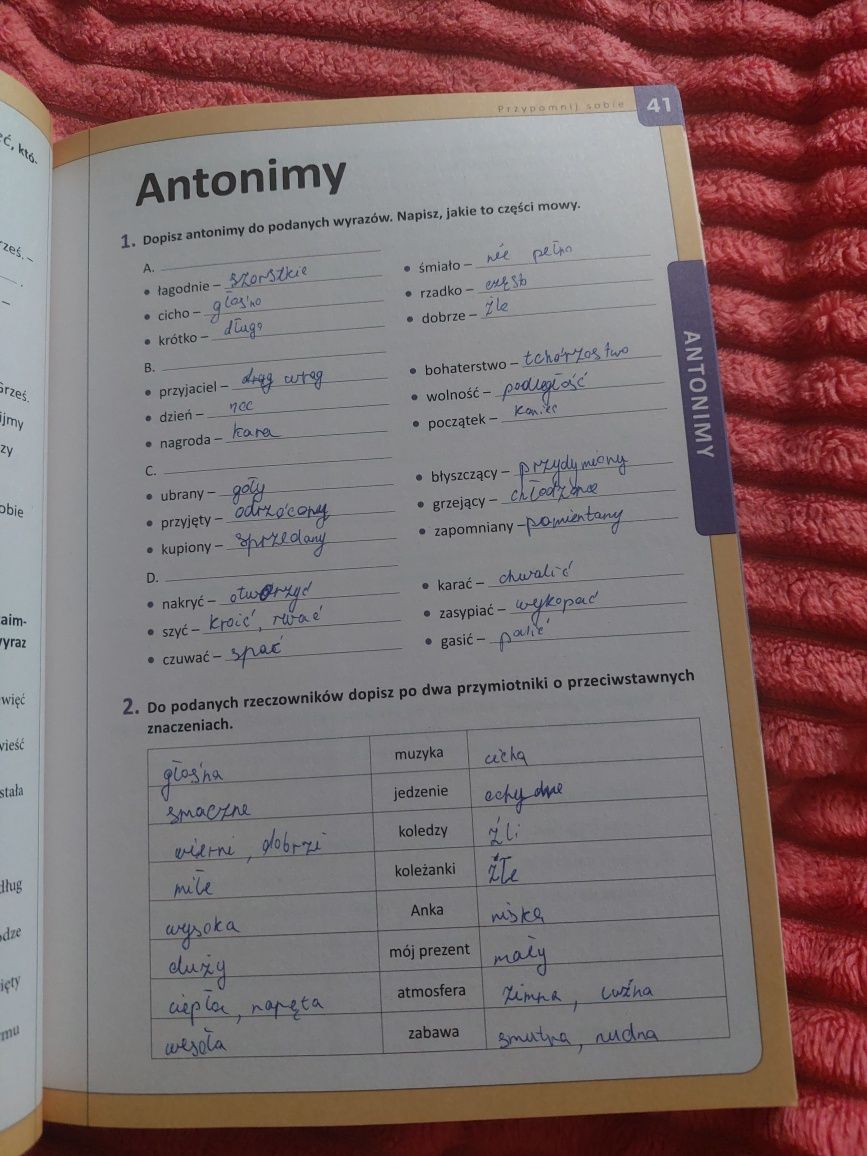 Przypomnij sobie 41
Antonimy
1. Dopisz antonimy do podanych wyrazów. Napisz, jakie to części mowy.
A.
• łagodnie – szorstkie
• cicho – głośno
• krótko – długo
• śmiało – nie pełno
• rzadko –
• dobrze – źle
B.
• przyjaciel – wrąg
• dzień – noc
• nagroda – kara
• bohaterstwo – tchórzostwo
• wolność – podległość
• początek – koniec
C.
• ubrany – goły
• przyjęty – odrzócony
• kupiony – sprzedany
• błyszczący – przydymiony
• grzejący –
• zapomniany – pamientany
D.
• nakryć – otworzyć
• szyć – kroić, rwać
• czuwać – spać
• karać – chwalić
• zasypiać – wykopać
• gasić – palić
ANTONIMY
2. Do podanych rzeczowników dopisz po dwa przymiotniki o przeciwstawnych
znaczeniach.
głośna muzyka cicha
smaczne jedzenie ochydne
wierni, dobrzi koledzy źli
miłe koleżanki źłe
wysoka Anka niska
duży mój prezent mały
ciepła, napęta atmosfera zimna, luźna
wesoła zabawa smutna, nudna
eć, któ-
rześ. –
Grześ.
ijmy
zy
obie
aim-
yraz
więć
wieść
stała
dług
odze
ięty
mu